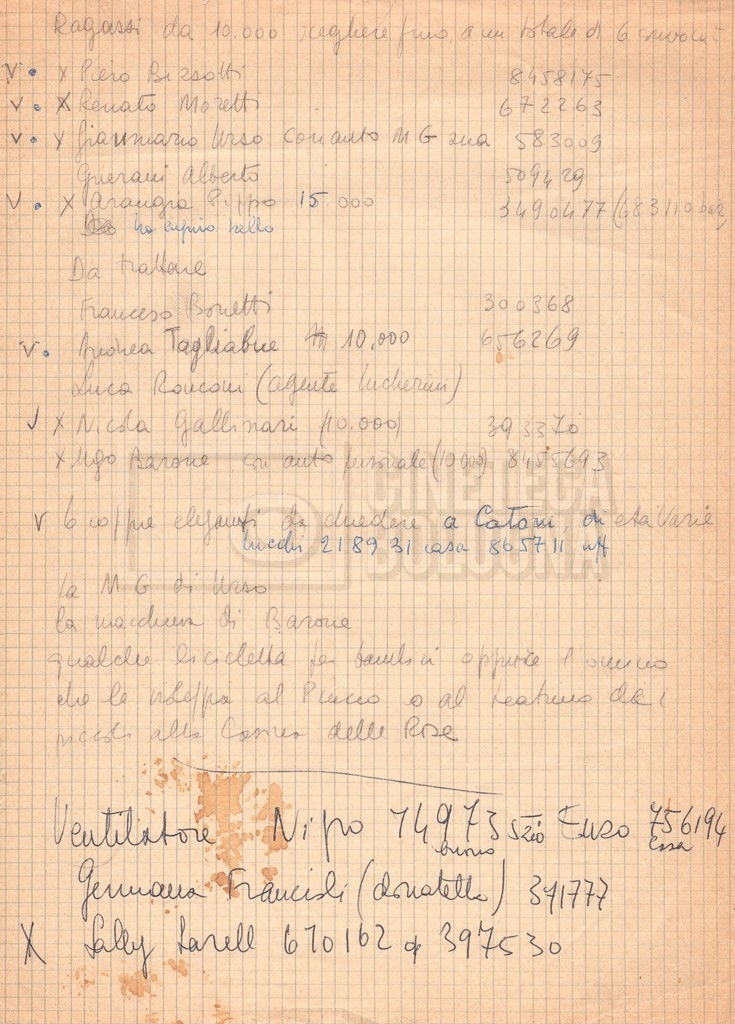 Ragazzi da 10.000 scegliere fino a un totale di 6
V. X Piero Bizzotti 8458175
V. X Renato Moretti 672263
V. X Gianmario Urso con auto MG sua 583009
Alberto 509429
V. X Arangia Pippo 15.000 3490477 (683110
Da trattare
Francesco Bonetti 300368
V. Andrea Tagliabue 10.000 656269
Luca Ronconi (agente Lucherini)
V X Nicola Gallinari (10.000) 393370
X Ugo Barone con auto personale (10000) 8455693
V 6 coppie eleganti da chiedere a Catoni, di età varie
218931 casa 865711 uff
CINETECA
BOLOGNA
la MG di Urso
la macchina di Barone
qualche bicicletta per bambini oppure l'omino
che le noleggia al Pincio o al teatrino dei
piccoli alla Casina delle Rose
Ventilatore Nipo 74973 Enzo 756194
casa
Germana Francioli (donatello) 391777
X 670162 o 397530